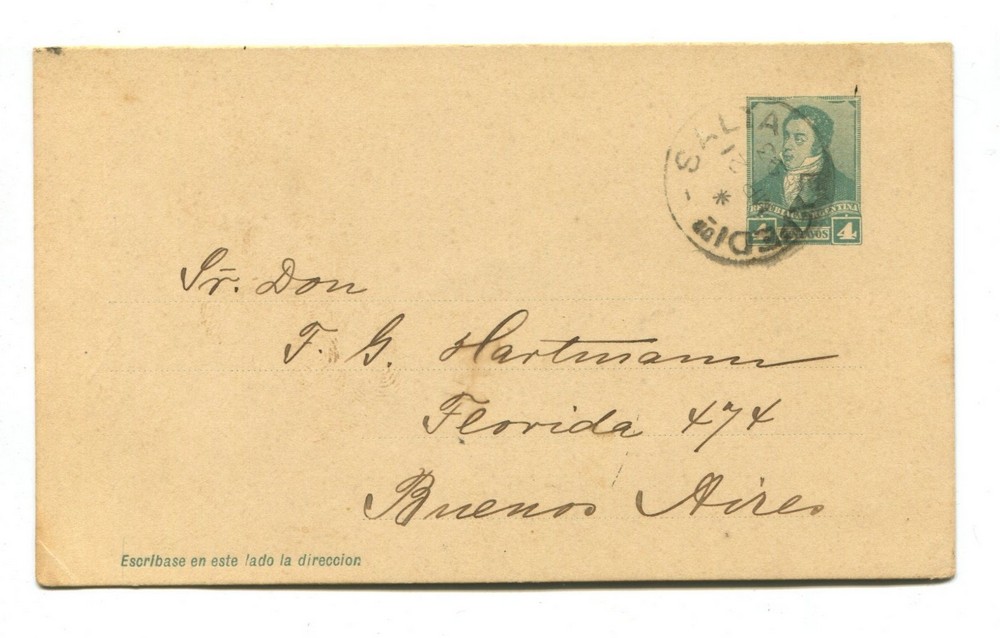 SALTA
REPUBLICA ARGENTINA
4 CENTAVOS 4
Sr. Don
F. G. Hartmann
Florida 474
Buenos Aires
Escribase en este lado la direccion